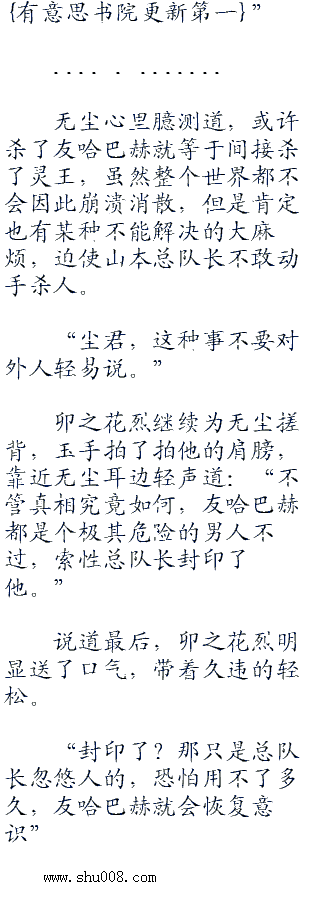 {有意思书院更新第一}”
．．．． ． ．．．．．．．
无尘心里臆测道，或许
杀了友哈巴赫就等于间接杀
了灵王，虽然整个世界都不
会因此崩溃消散，但是肯定
也有某种不能解决的大麻
烦，迫使山本总队长不敢动
手杀人。
“尘君，这种事不要对
外人轻易说。”
卯之花烈继续为无尘搓
背，玉手拍了拍他的肩膀，
靠近无尘耳边轻声道：“不
管真相究竟如何，友哈巴赫
都是个极其危险的男人不
过，索性总队长封印了
他。”
说道最后，卯之花烈明
显送了口气，带着久违的轻
松。
“封印了？那只是总队
长忽悠人的，恐怕用不了多
久，友哈巴赫就会恢复意
识”
www.shu008.com